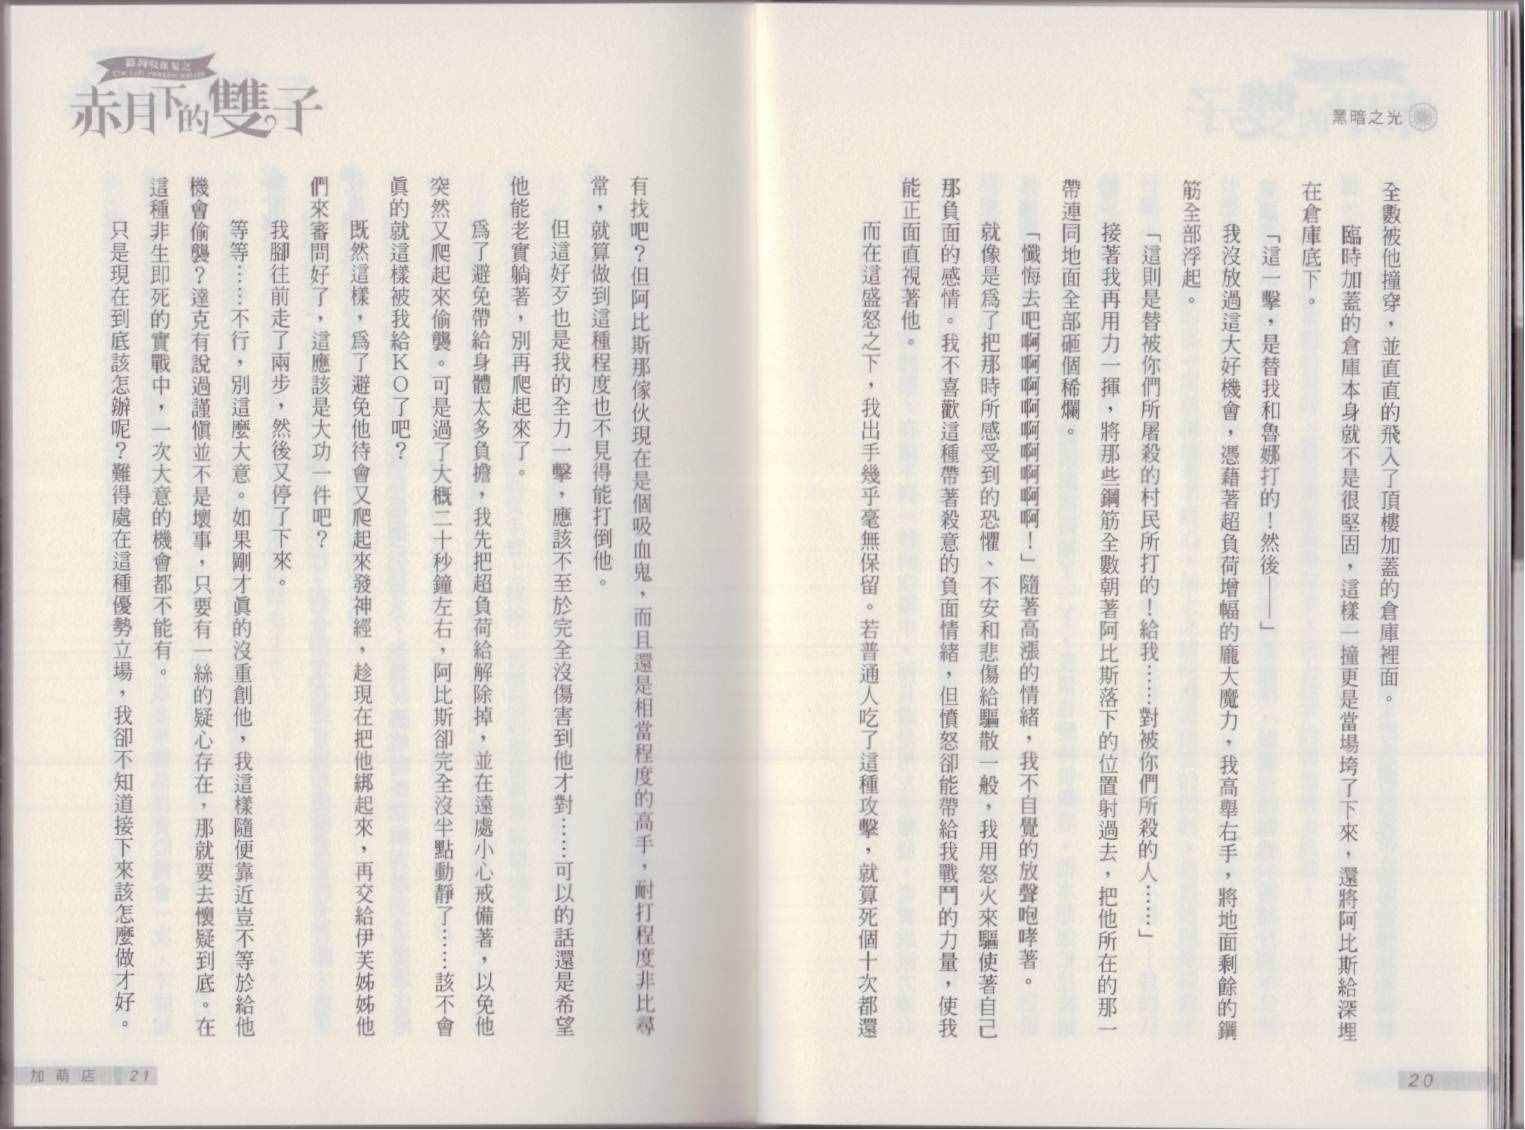 黑暗之光
全數被他撞穿，並直直的飛入了頂樓加蓋的倉庫裡面。
臨時加蓋的倉庫本身就不是很堅固，這樣一撞更是當場垮了下來，還將阿比斯給深埋
在倉庫底下。
「這一擊，是替我和魯娜打的！然後——」
我沒放過這大好機會，憑藉著超負荷增幅的龐大魔力，我高舉右手，將地面剩餘的鋼
筋全部浮起。
「這則是替被你們所屠殺的村民所打的！給我……對被你們所殺的人……」
接著我再用力一揮，將那些鋼筋全數朝著阿比斯落下的位置射過去，把他所在的那一
帶連同地面全部砸個稀爛。
「懺悔去吧啊啊啊啊啊啊啊啊！」隨著高漲的情緒，我不自覺的放聲咆哮著。
就像是為了把那時所感受到的恐懼、不安和悲傷給驅散一般，我用怒火來驅使著自己
那負面的感情。我不喜歡這種帶著殺意的負面情緒，但憤怒卻能帶給我戰鬥的力量，使我
能正面直視著他。
而在這盛怒之下，我出手幾乎毫無保留。若普通人吃了這種攻擊，就算死個十次都還
20
赤月下的雙子
有找吧？但阿比斯那傢伙現在是個吸血鬼，而且還是相當程度的高手，耐打程度非比尋
常，就算做到這種程度也不見得能打倒他。
但這好歹也是我的全力一擊，應該不至於完全沒傷害到他才對……可以的話還是希望
他能老實躺著，別再爬起來了。
為了避免帶給身體太多負擔，我先把超負荷給解除掉，並在遠處小心戒備著，以免他
突然又爬起來偷襲。可是過了大概二十秒鐘左右，阿比斯卻完全沒半點動靜了……該不會
真的就這樣被我給ＫＯ了吧？
既然這樣，為了避免他待會又爬起來發神經，趁現在把他綁起來，再交給伊芙姊姊他
們來審問好了，這應該是大功一件吧？
我腳往前走了兩步，然後又停了下來。
等等……不行，別這麼大意。如果剛才真的沒重創他，我這樣隨便靠近豈不等於給他
機會偷襲？達克有說過謹慎並不是壞事，只要有一絲的疑心存在，那就要去懷疑到底。在
這種非生即死的實戰中，一次大意的機會都不能有。
只是現在到底該怎麼辦呢？難得處在這種優勢立場，我卻不知道接下來該怎麼做才好。
加萌店 21